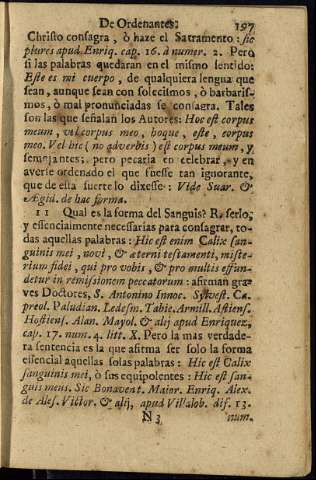 De Ordenantes: 197
Christo consagra, ò haze el Sacramento: sic
plures apud Enriq. cap. 16. à numer. 2. Pero
si las palabras quedaran en el mismo sentido:
Este es mi cuerpo, de qualquiera lengua que
sean, aunque sean con solecismos, ò barbaris-
mos, ò mal pronunciadas se consagra. Tales
son las que señalan los Autores: Hoc est corpus
meum, vel corpus meo, hoque, este, corpus
meo. Vel hic (no adverbis) est corpus meum, y
semejantes; pero pecaria en celebrar, y en
averse ordenado el que fuesse tan ignorante,
que de esta suerte lo dixesse: Vide Suar. &
Ægid. de hac forma.
11 Qual es la forma del Sanguis? R. serlo,
y essencialmente necessarias para consagrar, to-
das aquellas palabras: Hic est enim Calix san-
guinis mei, novi, & æterni testamenti, miste-
rium fidei, qui pro vobis, & pro multis effun-
detur in remissionem peccatorum: afirman gra-
ves Doctores, S. Antonino Innoc. Sylvest. Ca-
preol. Paludian. Ledesm. Tabie. Armill. Astiens.
Hostiens. Alan. Mayol. & alij apud Enriquez,
cap. 17. num. 4. litt. X. Pero la mas verdade-
ra sentencia es la que afitma ser solo la forma
essencial aquellas solas palabras: Hic est Calix
sanguinis mei, ò sus equipolentes: Hic est san-
guis meus. Sic Bonavent. Maior. Enriq. Alex.
de Ales. Victor. & alij, apud Villalob. dif. 13.
N 3 num.